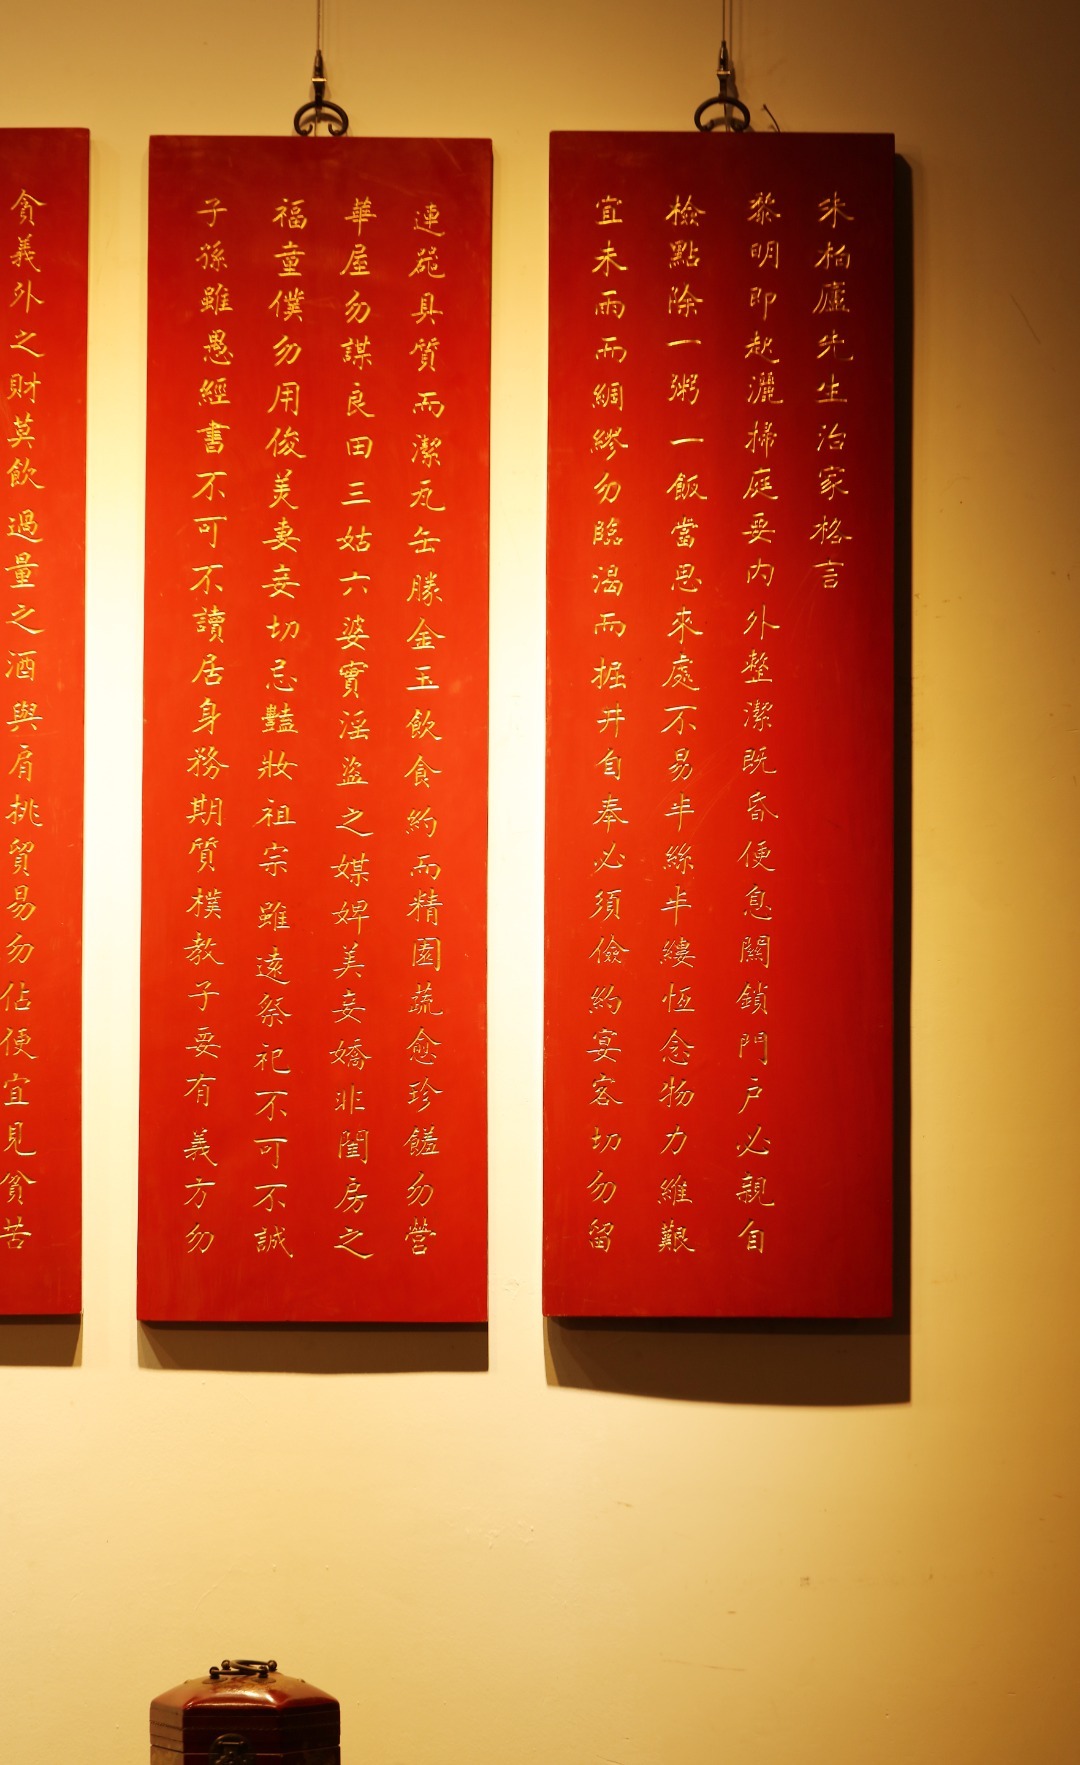 朱柏廬先生治家格言
黎明即起灑掃庭要內外整潔既昏便息關鎖門户必親自
檢點除一粥一飯當思來處不易半絲半縷恆念物力維艱
宜未雨而綢繆勿臨渴而掘井自奉必須儉約宴客切勿留
連器具質而潔瓦缶勝金玉飲食約而精園蔬愈珍饈勿營
華屋勿謀良田三姑六婆實淫盜之媒婢美妾嬌非閨房之
福童僕勿用俊美妻妾切忌豔妝祖宗雖遠祭祀不可不誠
子孫雖愚經書不可不讀居身務期質樸教子要有義方勿
貪義外之財莫飲過量之酒與肩挑貿易勿佔便宜見貧苦